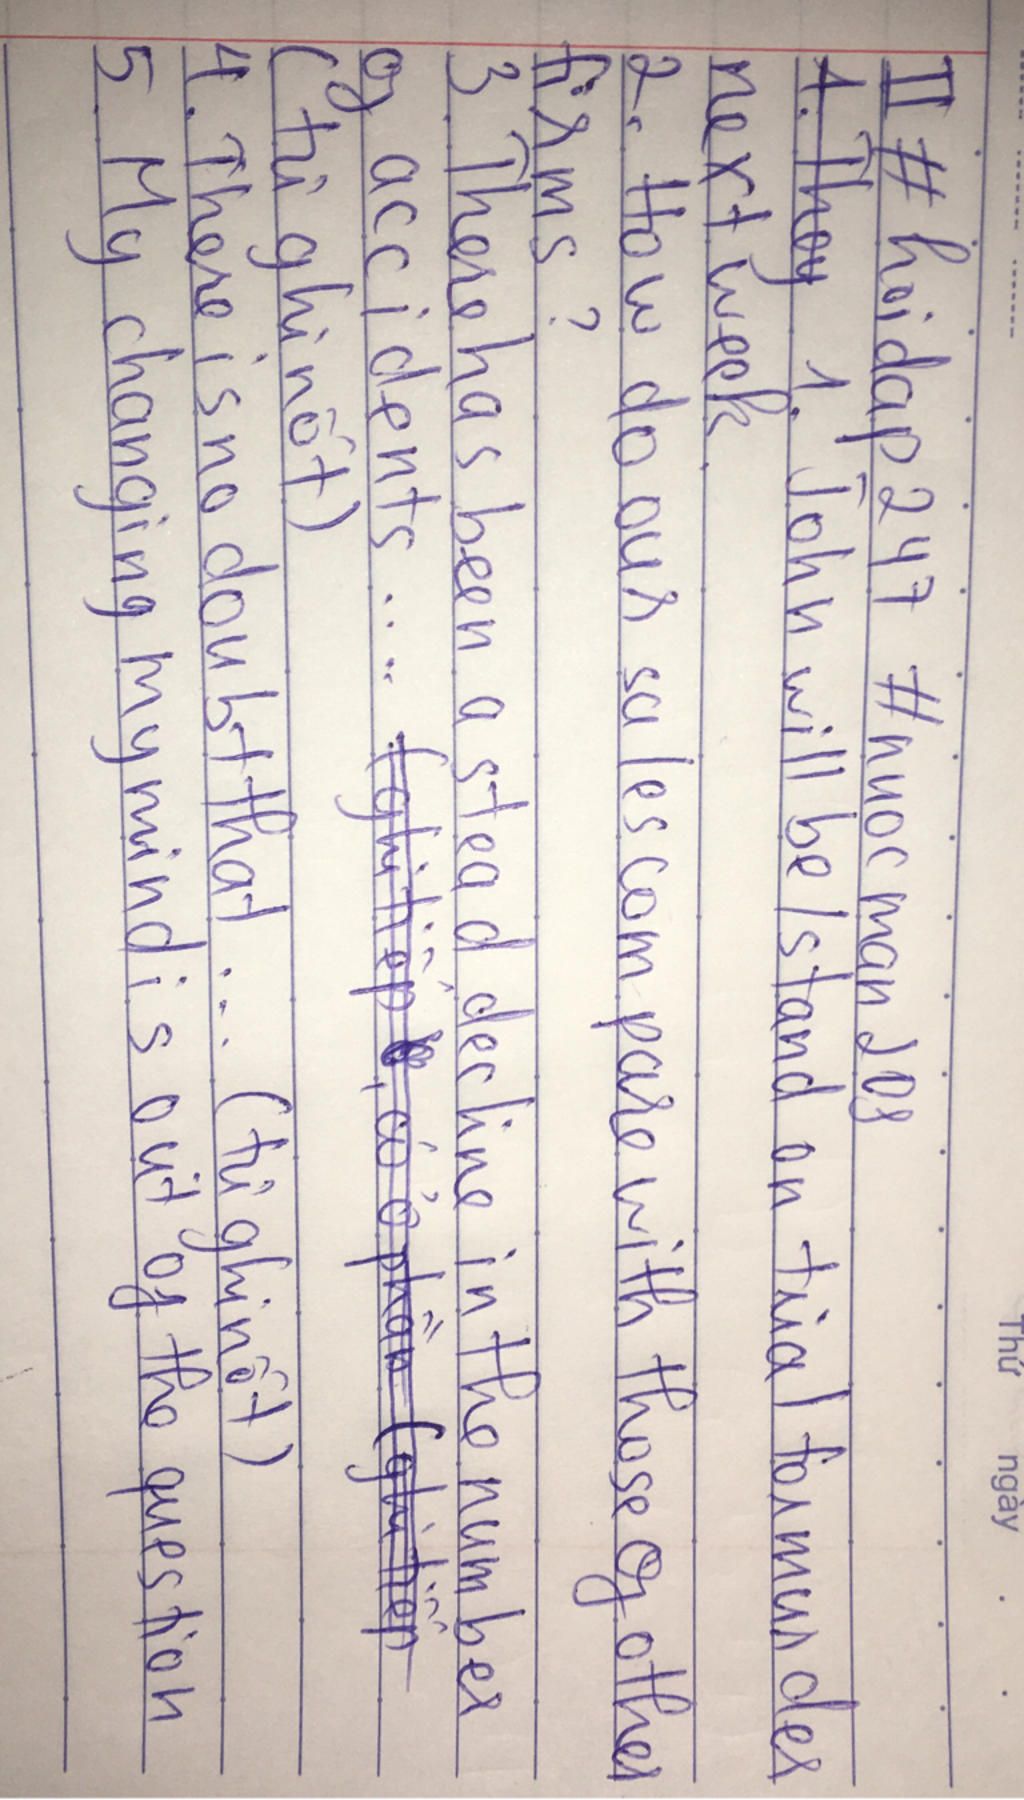 Thứ ngày
II # hoidap247 # nuocman203
1. They 1. John will be / stand on trial for murder
next week.
2. How do our sales compare with those of other
firms ?
3 There has been a stead decline in the number
of accidents ....
( tự ghi nốt )
4. There is no doubt that .... ( tự ghi nốt )
5. My changing my mind is out of the question